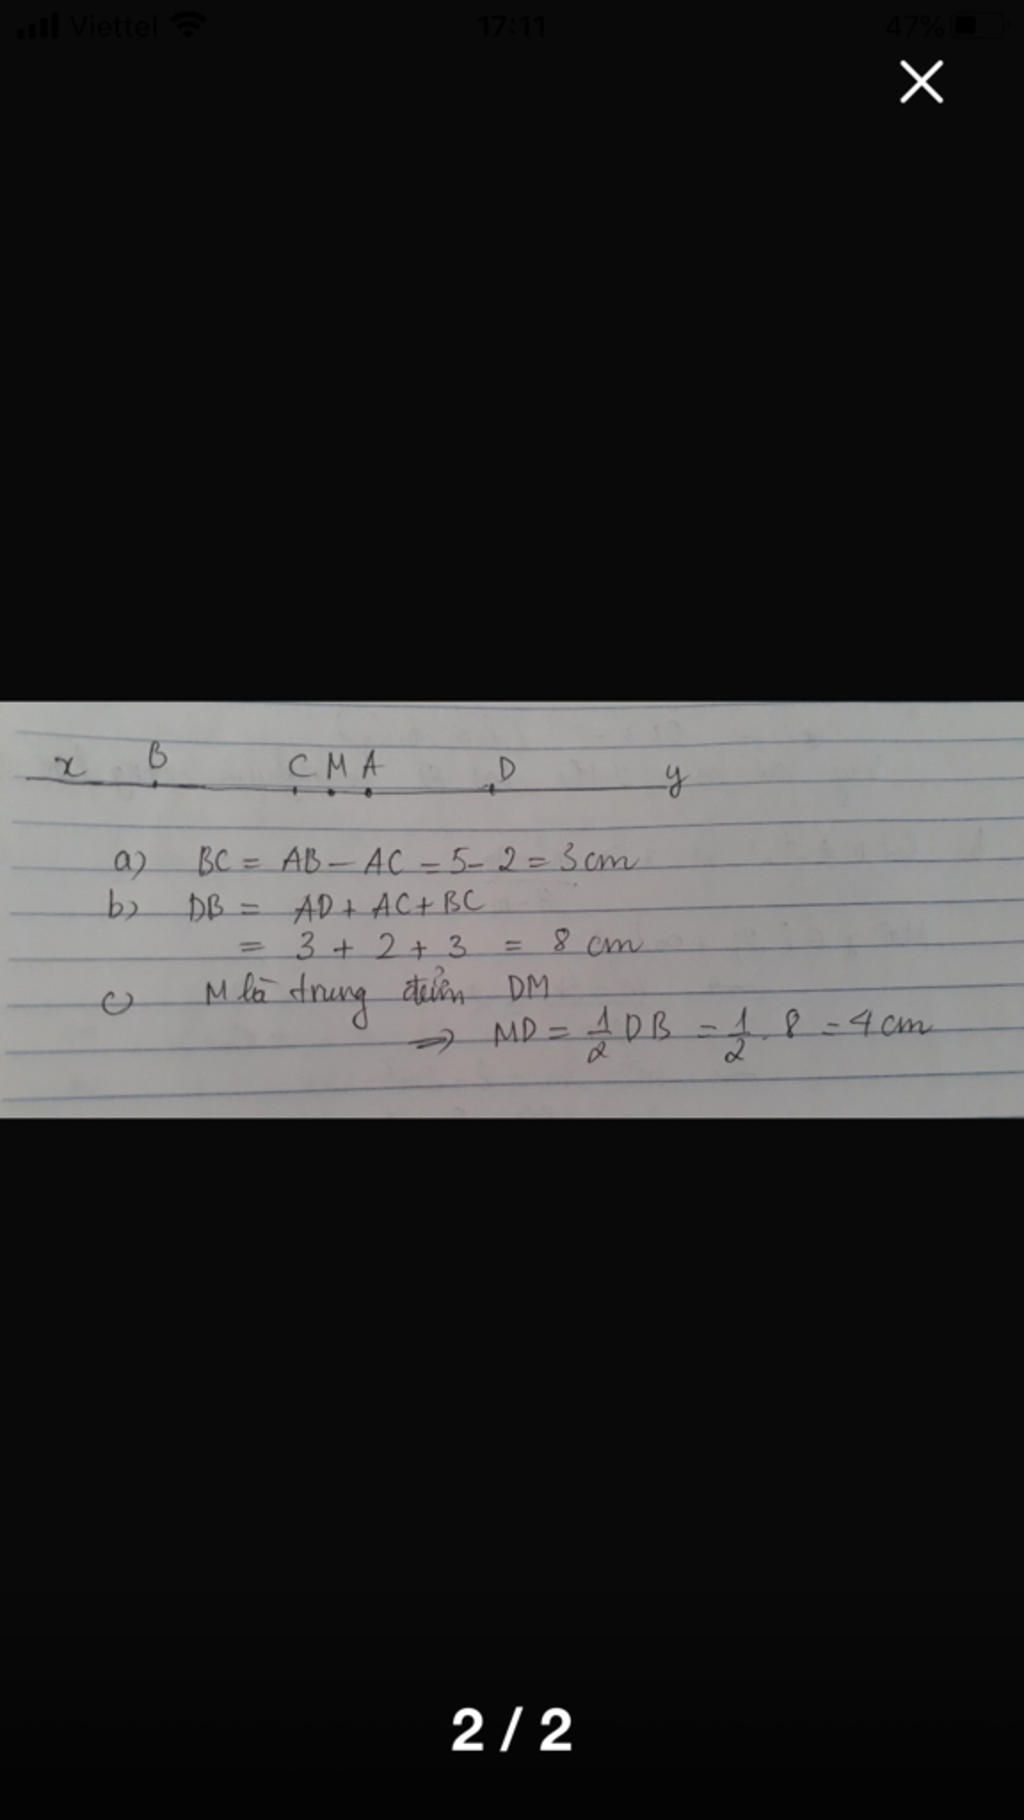 Viettel 17:11 47%
x B C M A D y
a) BC = AB - AC = 5 - 2 = 3cm
b) DB = AD + AC + BC
= 3 + 2 + 3 = 8 cm
c) M là trung điểm DM
=> MD = 1/2 DB = 1/2 . 8 = 4 cm
2 / 2